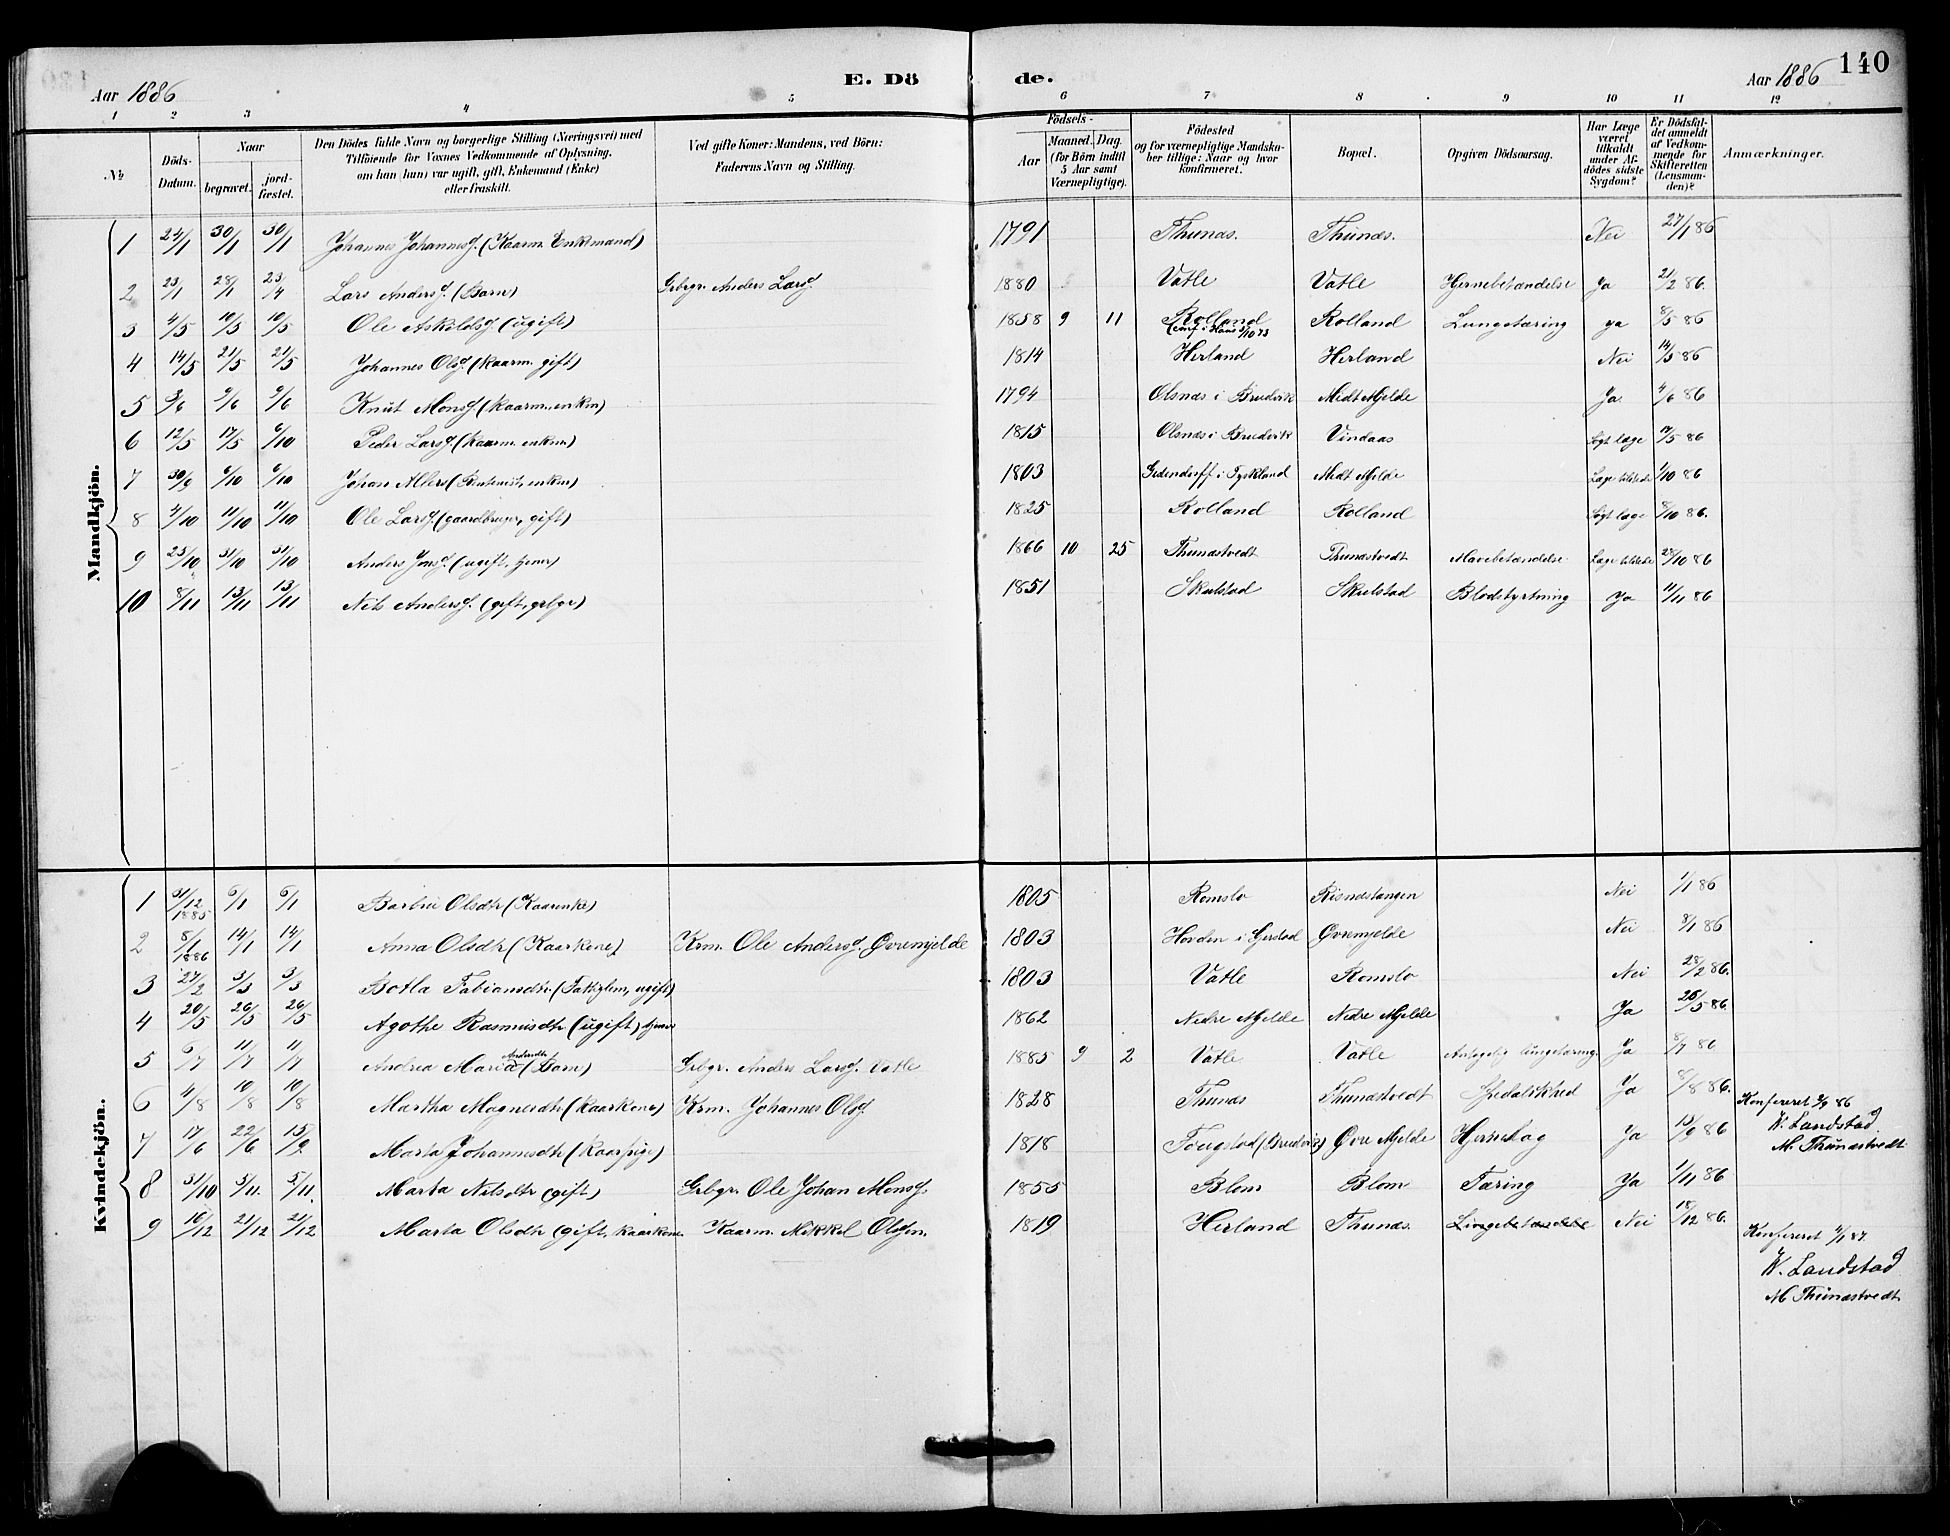 140
Aar 1886 E. Dö de. Aar 1886
1 2 3 4 5 6 7 8 9 10 11 12
№ Döds-Datum. Naar begravet. jordfæstet. Den Dödes fulde Navn og borgerlige Stilling (Næringsvei) med Tilföiende for Voxnes Vedkommende af Oplysning, om han (hun) var ugift, gift, Enkemand (Enke) eller fraskilt. Ved gifte Koner: Mandens, ved Börn: Faderens Navn og Stilling. Födsels- Aar Maaned. Dag. (for Börn indtil 5 Aar samt Værnepligtige). Födested og for værnepligtige Mandskaber tillige: Naar og hvor konfirmeret. Bopæl. Opgiven Dödsaarsag. Har Læge været tilkaldt under Afdödes sidste Sygdom? Er Dödsfaldet anmeldt af Vedkommende for Skifteretten (Lensmanden)? Anmærkninger.
Mandkjön.
1 24/1 30/1 30/1 Johannes Johannessf. (Kaarm. Enkemand) 1791 Thunæs. Thunæs. Nei 27/1 86
2 23/1 28/1 23/4 Lars Andersf. (Barn) Grbgr. Anders Larsf. 1880 Vatle Vatle Hernebetændelse Ja 21/2 86.
3 4/5 10/5 10/5 Ole Askildsf (ugift) 1858 9 11 Rolland Rolland Lungetæring ya 8/5 86
4 14/5 21/5 21/5 Johannes Olsf. (Kaarm. gift) 1814 Herland Herland Nei 14/5 86
5 3/6 9/6 9/6 Knut Monsf. (kaarm. enkm) 1794 Olsnæs i Bruvik Midt Mjelde Ja. 4/6 86
6 12/5 17/5 6/10 Peder Larsf. (Kaarm. enkm) 1815 Olsnæs i Bruvik Vindaas Sygt læge 17/5 86
7 30/9 6/10 6/10 Johan Albers (Rentenist, enkm) 1803 i Tyskland Midt Mjelde Læge tilstede 1/10 86
8 4/10 11/10 11/10 Ole Larsf. (gaardbruger, gift) 1825 Rolland Rolland Sygt læge 8/10 86.
9 23/10 31/10 31/10 Anders Jonsf. (ugift, tjener) 1866 10 25 Thunæstvedt Thunæstvedt Mavebetændelse Læge tilstede 28/10 86
10 8/11 13/11 13/11 Nils Andersf. (gift, grbgr) 1851 Skulstad Skulstad Blodstyrtning Ja 11/11 86
Kvindekjön.
1 31/12 1885 6/1 6/1 Barbru Olsdtr (Kaarenke) 1805 Romslo Risnæstangen Nei 1/1 86
2 8/1 1886 14/1 14/1 Anna Olsdtr (Kaarkone) Krm. Ole Andersf. Øvremjelde 1803 Hovden i Gjerstad Øvremjelde Nei 8/1 86
3 27/2 3/3 3/3 Botla Fabiansdtr (Fattiglem, ugift) 1803 Vatle Romslo Nei 28/2 86.
4 20/5 26/5 26/5 Agothe Rasmusdtr (ugift) tjener 1862 Nedre Mjelde Nedre Mjelde Ja 26/5 86.
5 6/7 11/7 11/7 Andrea Maria Andersdtr (Barn) Grbgr. Anders Larsf. Vatle 1885 9 2 Vatle Vatle Antagelig lungetæring. Ja 8/7 86
6 4/8 10/8 10/8 Martha Magnesdtr (Kaarkone) Krm. Johannes Olsf 1828 Thunæs Thunæstvedt Spedalskhed Ja 8/8 86. Konfereret 3/9 86
V. Landstad
M. Thunæstvedt
7 17/6 22/6 15/9 Marta Johannesdtr (Kaarpige) 1818 Fougstad (Bruvik) Øvre Mjelde Hjerneslag Ja 15/9 86
8 31/10 5/11. 5/11. Marta Nilsdtr (gift) Grbgr. Ole Johan Monsf. 1855 Blom Blom Tæring Ya 1/11 86
9 16/12 21/12 21/12 Marta Olsdtr (gift, kaarkone Kaarm. Mikkel Olsen. 1819 Herland Thunæs. Lungebetændelse Nei 18/12 86.
Konfereret 4/1 87.
V. Landstad
M. Thunæstvedt